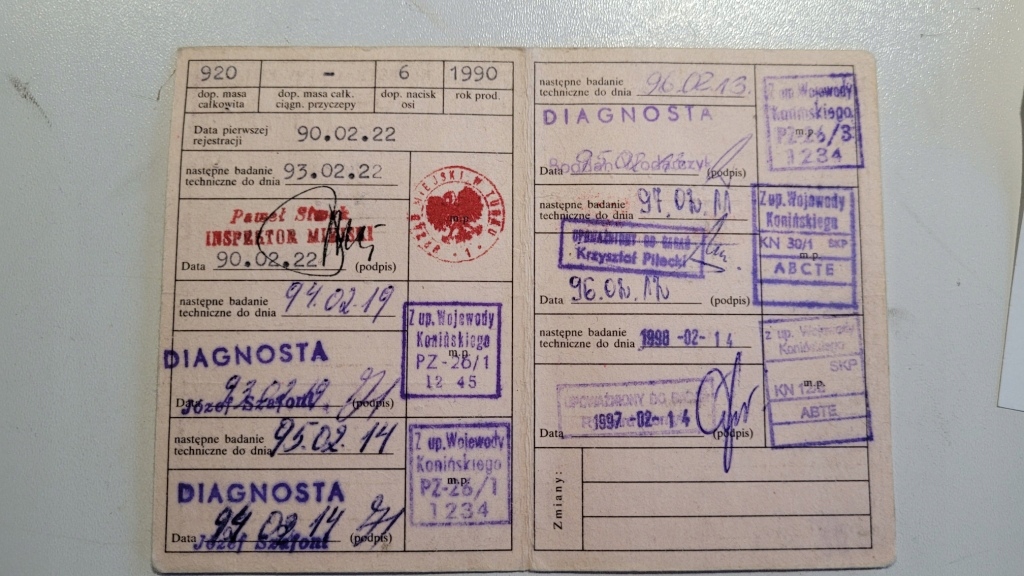 920 - 6 1990
dop. masa całkowita dop. masa całk. ciągn. przyczepy dop. nacisk osi rok prod.
Data pierwszej rejestracji 90.02.22
następne badanie techniczne do dnia 93.02.22
Paweł
INSPEKTOR
MIEJSKI W TURKU
m.p.
Data 90.02.22 (podpis)
następne badanie techniczne do dnia 94.02.19
Z up. Wojewody
Konińskiego
m.p.
PZ-26/1
12 45
DIAGNOSTA
Data (podpis)
Józef Szafont
następne badanie techniczne do dnia 95.02.14
Z up. Wojewody
Konińskiego
m.p.
PZ-26/1
1234
DIAGNOSTA
Data 94.02.14 (podpis)
Józef Szafont
następne badanie techniczne do dnia 96.02.13.
Z up. Wojewody
Konińskiego
m.p.
PZ-26/3
1234
DIAGNOSTA
Data (podpis)
następne badanie techniczne do dnia
Z up. Wojewody
Konińskiego
KN 30/1 SKP
m.p.
ABCTE
UPOWAŻNIONY DO BADAŃ
Krzysztof Pilecki
Data (podpis)
następne badanie techniczne do dnia 1998 -02- 14
Z up. Wojewody
Konińskiego
SKP
m.p.
KN
ABTE
UPOWAŻNIONY DO BADAŃ
Data 1997 -02- 14 (podpis)
Zmiany: